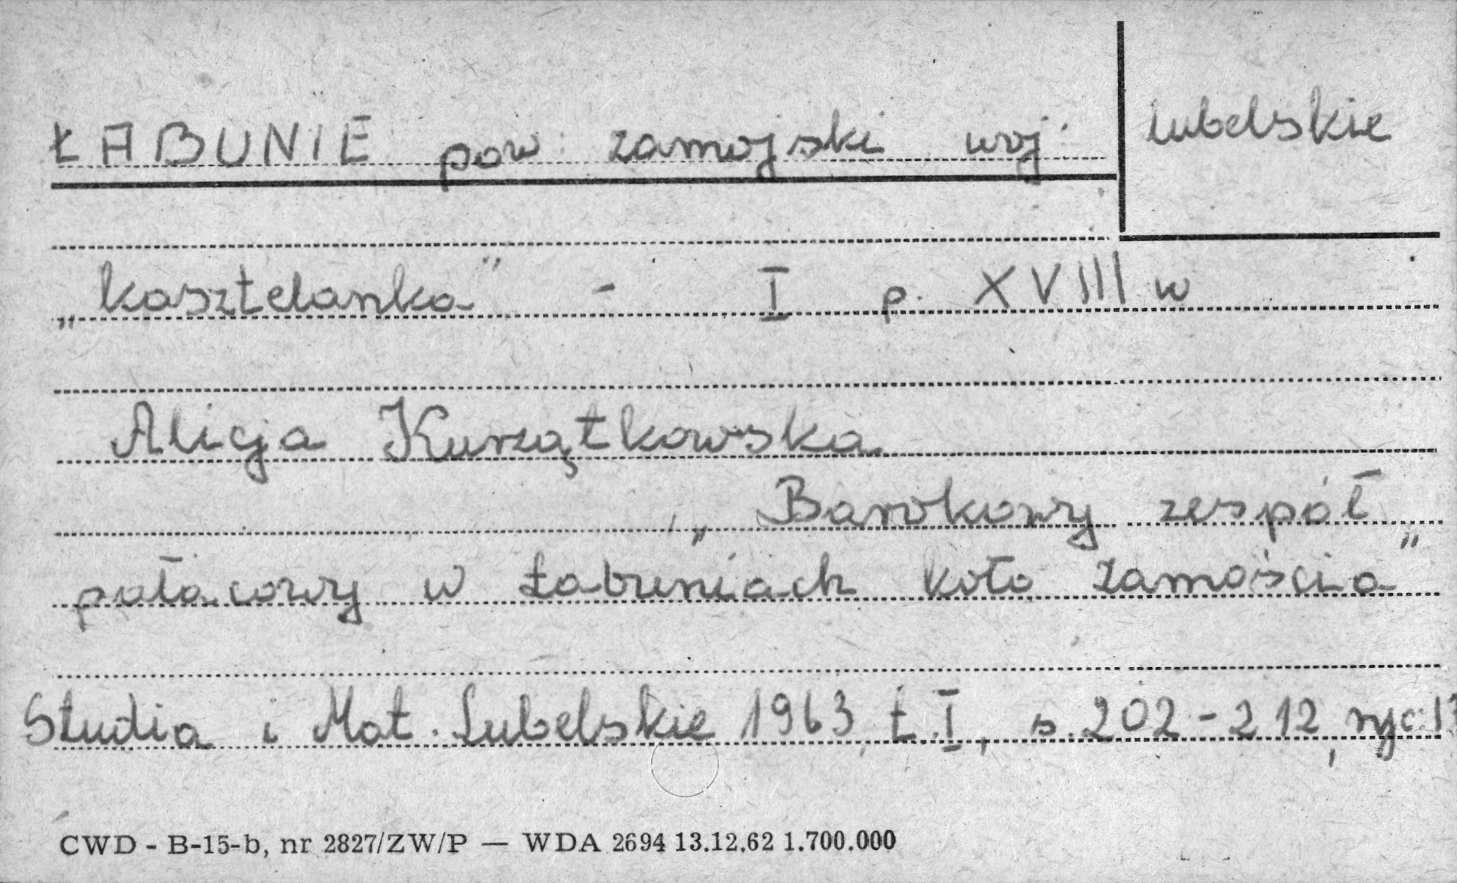 ŁABUNIE pow. zamojski woj. lubelskie
„kasztelanka” - I p. XVIII w
Alicja Kurzątkowska
„Barokowy zespół
pałacowy w Łabuniach koło Zamościa”
Studia i Mat. Lubelskie 1963, t. I, s. 202-212, ryc.
CWD - B-15-b, nr 2827/ZW/P — WDA 2694 13.12.62 1.700.000